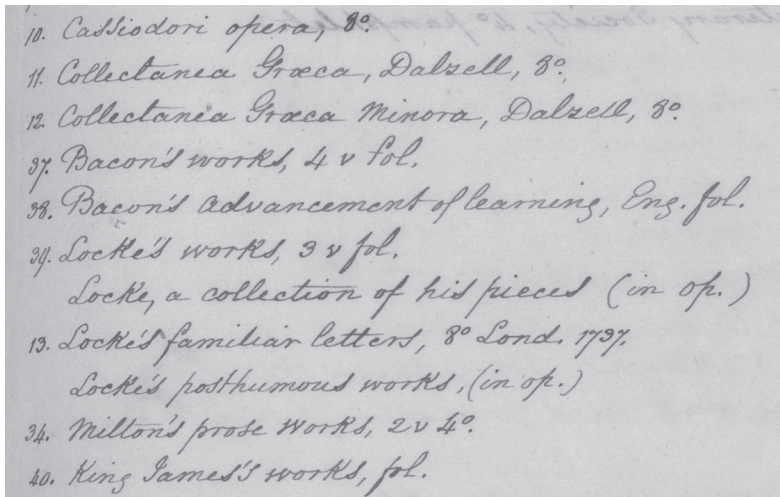 10. Cassiodori opera, 8º.
11. Collectanea Græca, Dalzell, 8º.
12. Collectanea Græca Minora, Dalzell, 8º.
37. Bacon's works, 4 v fol.
38. Bacon's advancement of learning, Eng. fol.
39. Locke's works, 3 v fol.
Locke, a collection of his pieces (in op.)
13. Locke's familiar letters, 8º Lond. 1737.
Locke's posthumous works, (in op.)
34. Milton's prose works, 2 v 4º.
40. King James's works, fol.